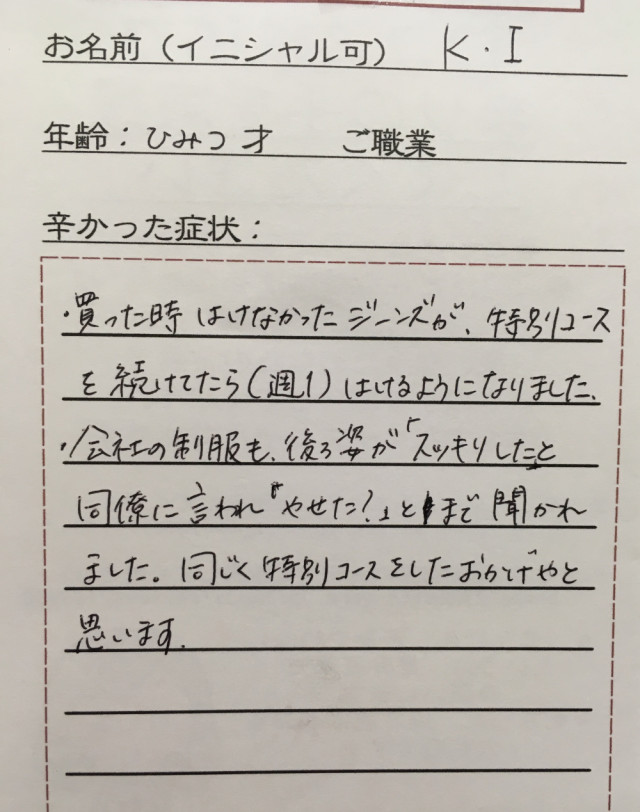 お名前（イニシャル可） K・I
年齢：ひみつ才 ご職業
辛かった症状：
・買った時はけなかったジーンズが、特別コース
を続けてたら（週1）はけるようになりました、
・会社の制服も、後ろ姿が「スッキリした」と
同僚に言われ「やせた？」とまで聞かれ
ました。同じく特別コースをしたおかげやと
思います。